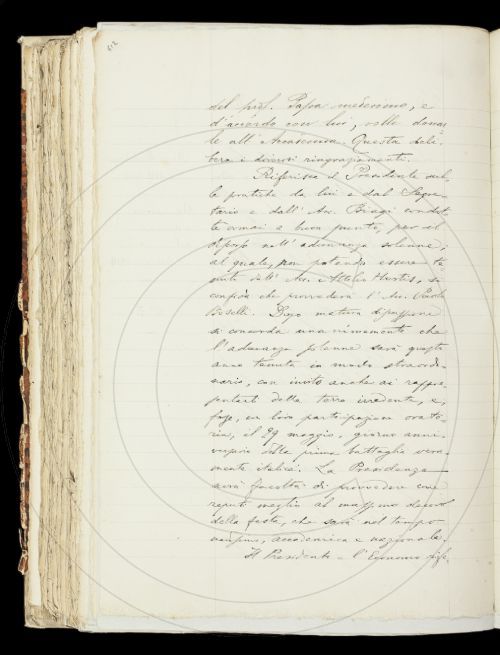 612
del prof. Papa medesimo, e
d'accordo con lui, volle donar
le all'Accademia. Questa deli-
bera i dovuti ringraziamenti.
Riferisce il Presidente sul
le pratiche da lui e dal Segre-
tario e dall'Acc. Biagi condot
te ormai a buon punto, per il
discorso nell'adunanza solenne;
al quale, non potendo essere te
nuto dall'Acc. Attilio Hortis, si
confida che provvederà l'Acc. Paolo
Boselli. Dopo matura discussione
si concorda unanimemente che
l'adunanza solenne sarà quest'
anno tenuta in modo straordi-
nario, con invito anche ai rappre
sentanti delle terre irredente, e,
forse, con loro partecipazione orato-
ria, il 29 maggio, giorno anni-
versario della prima battaglia vera-
mente italica. La Presidenza
avrà facoltà di provvedere come
reputi meglio al massimo decoro
della festa, che sarà nel tempo
medesimo, accademica e nazionale.
Il Presidente e l'Economo rife-